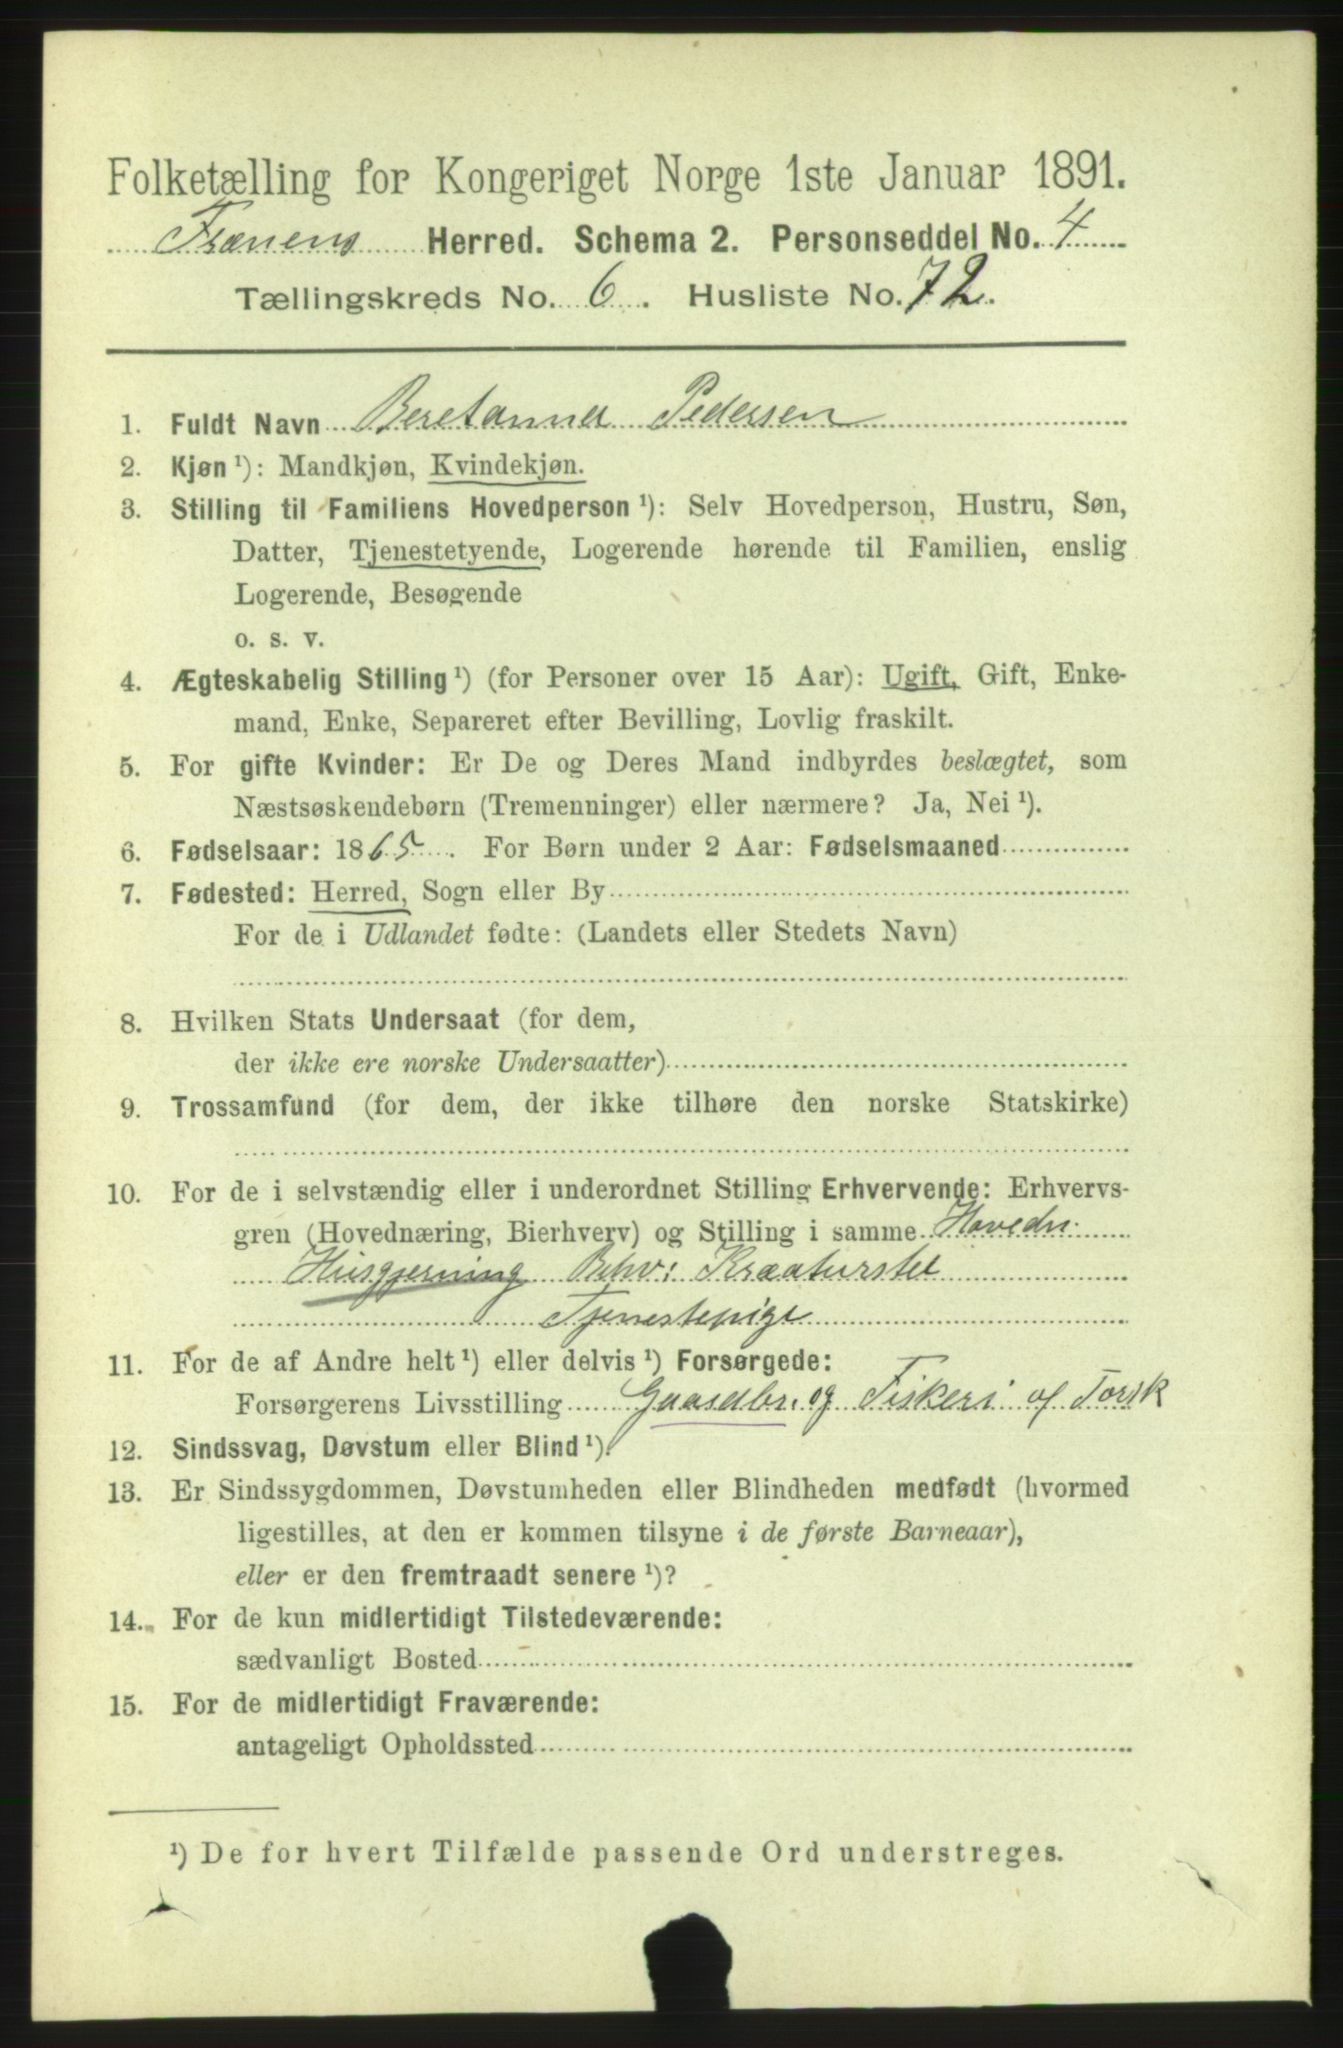 Folketælling for Kongeriget Norge 1ste Januar 1891.
Frænens Herred. Schema 2. Personseddel No. 4
Tællingskreds No. 6. Husliste No. 72.
1. Fuldt Navn Beretanna Pedersen
2. Kjøn ¹): Mandkjøn, Kvindekjøn.
3. Stilling til Familiens Hovedperson ¹): Selv Hovedperson, Hustru, Søn,
Datter, Tjenestetyende, Logerende hørende til Familien, enslig
Logerende, Besøgende
o. s. v.
4. Ægteskabelig Stilling ¹) (for Personer over 15 Aar): Ugift, Gift, Enke-
mand, Enke, Separeret efter Bevilling, Lovlig fraskilt.
5. For gifte Kvinder: Er De og Deres Mand indbyrdes beslægtet, som
Næstsøskendebørn (Tremenninger) eller nærmere? Ja, Nei ¹).
6. Fødselsaar: 1865. For Børn under 2 Aar: Fødselsmaaned
7. Fødested: Herred, Sogn eller By
For de i Udlandet fødte: (Landets eller Stedets Navn)
8. Hvilken Stats Undersaat (for dem,
der ikke ere norske Undersaatter)
9. Trossamfund (for dem, der ikke tilhøre den norske Statskirke)
10. For de i selvstændig eller i underordnet Stilling Erhvervende: Erhvervs-
gren (Hovednæring, Bierhverv) og Stilling i samme Hovedn.
Husgjerning Behv: Kræaturstel
Tjenestepige
11. For de af Andre helt ¹) eller delvis ¹) Forsørgede:
Forsørgerens Livsstilling Gaardbr. og Fiskeri af Torsk
12. Sindssvag, Døvstum eller Blind ¹).
13. Er Sindssygdommen, Døvstumheden eller Blindheden medfødt (hvormed
ligestilles, at den er kommen tilsyne i de første Barneaar),
eller er den fremtraadt senere ¹)?
14. For de kun midlertidigt Tilstedeværende:
sædvanligt Bosted
15. For de midlertidigt Fraværende:
antageligt Opholdssted
¹) De for hvert Tilfælde passende Ord understreges.